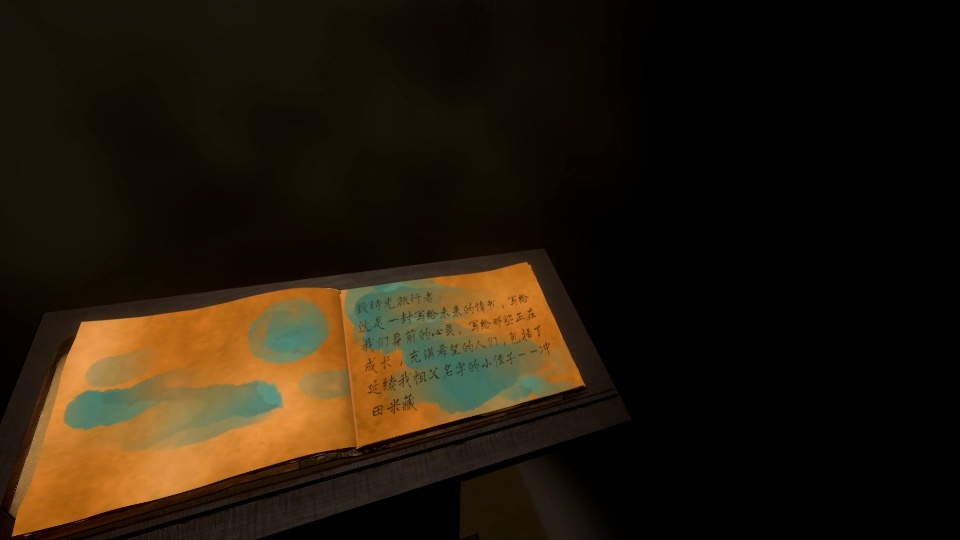 致时光旅行者
这是一封写给未来的情书，写给
我们身前的心灵、写给那些正在
成长，充满希望的人们，包括了
延续我祖父名字的小侄子——冲
田米藏